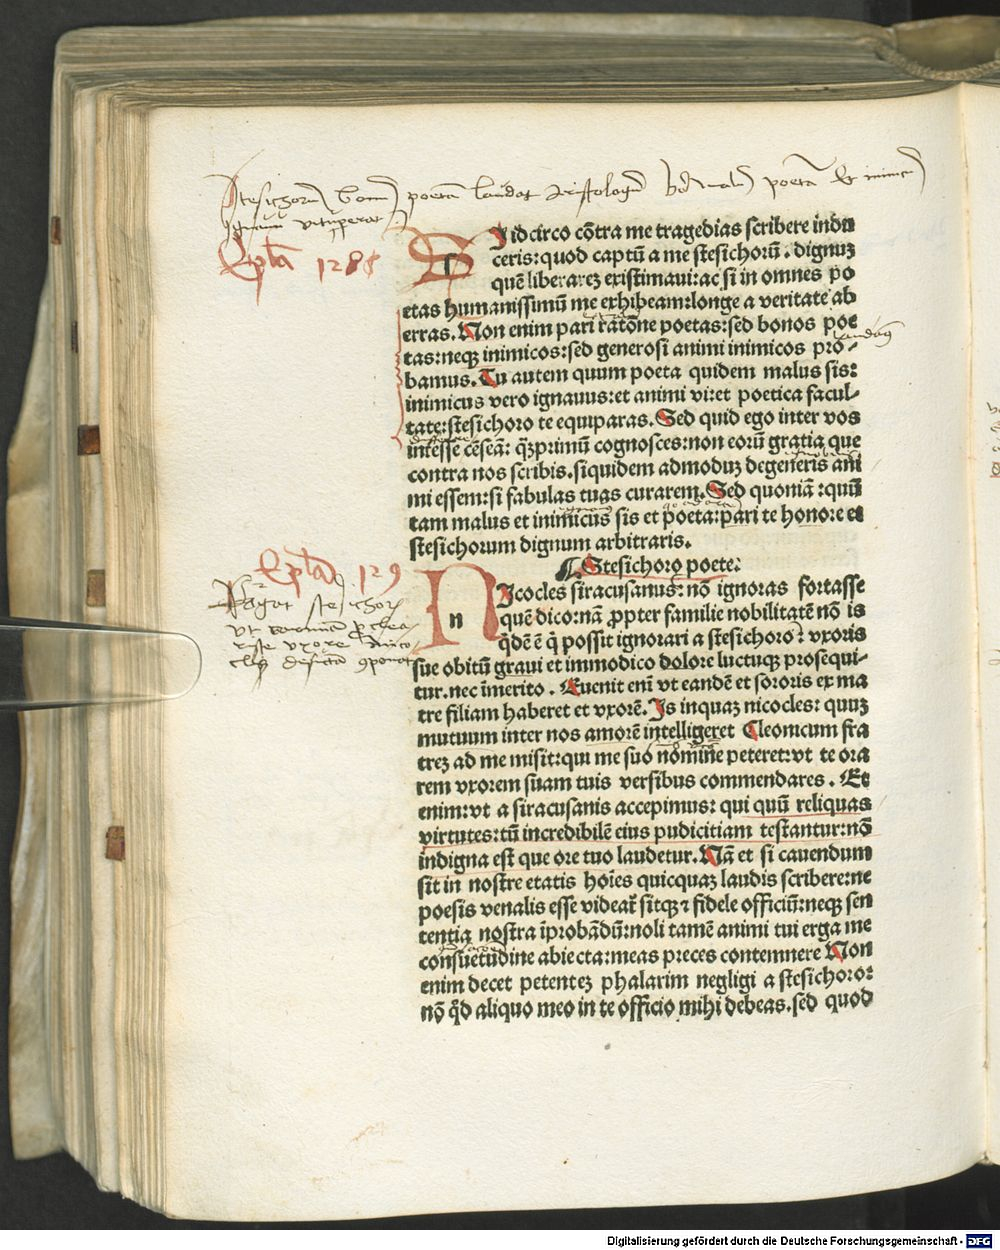 Stesichorum bonum poetam laudat
ignauum vituperat
Epla 128
S
I idcirco cōtra me tragedias scribere indu
ceris: quod captū a me stesichorū. dignuz
quē liberarez existimaui: ac si in omnes po
etas humanissimū me exhibeam: longe a veritate ab
erras. Non enim pari ratōne poetas: sed bonos poe
tas: neqz inimicos: sed generosi animi inimicos pro-
bamus. Tu autem quum poeta quidem malus sis:
inimicus vero ignauus: et animi vi: et poetica facul-
tate: stesichoro te equiparas. Sed quid ego inter vos
intesse cēseā: q̄zprimū cognosces: non eorū gratia que
contra nos scribis. siquidem admoduz degeneris ani
mi essem: si fabulas tuas curarem. Sed quoniā: quū
tam malus et inimicus sis et poeta: pari te honore et
stesichorum dignum arbitraris.
Stesichoro poete.
Epla 129
N
n
Icocles siracusanus: nō ignoras fortasse
quē dico: nā ꝓpter familie nobilitatē nō is
q̄dē ē q̄ possit ignorari a stesichoro: vxoris
sue obitū graui et immodico dolore luctuqz prosequi-
tur. nec īmerito. Euenit enī vt eandē et sororis ex ma
tre filiam haberet et vxorē. Is inquaz nicocles: quuz
mutuum inter nos amorē intelligeret Cleonicum fra
trez ad me misit: qui me suo nomine peteret: vt te ora
rem vxorem suam tuis versibus commendares. Et
enim: vt a siracusanis accepimus: qui quū reliquas
virtutes: tū incredibilē eius pudicitiam testantur: nō
indigna est que ore tuo laudetur. Nā et si cauendum
sit in nostre etatis hoīes quicquaz laudis scribere: ne
poesis venalis esse videat̄ sitqz ⁊ fidele officiū: neqz sen
tentia nostra īprobādū: noli tamē animi tui erga me
consuetudine abiecta: meas preces contemnere Non
enim decet petentez phalarim negligi a stesichoro:
nō q̄d aliquo meo in te officio mihi debeas. sed quod
Digitalisierung gefördert durch die Deutsche Forschungsgemeinschaft - DFG